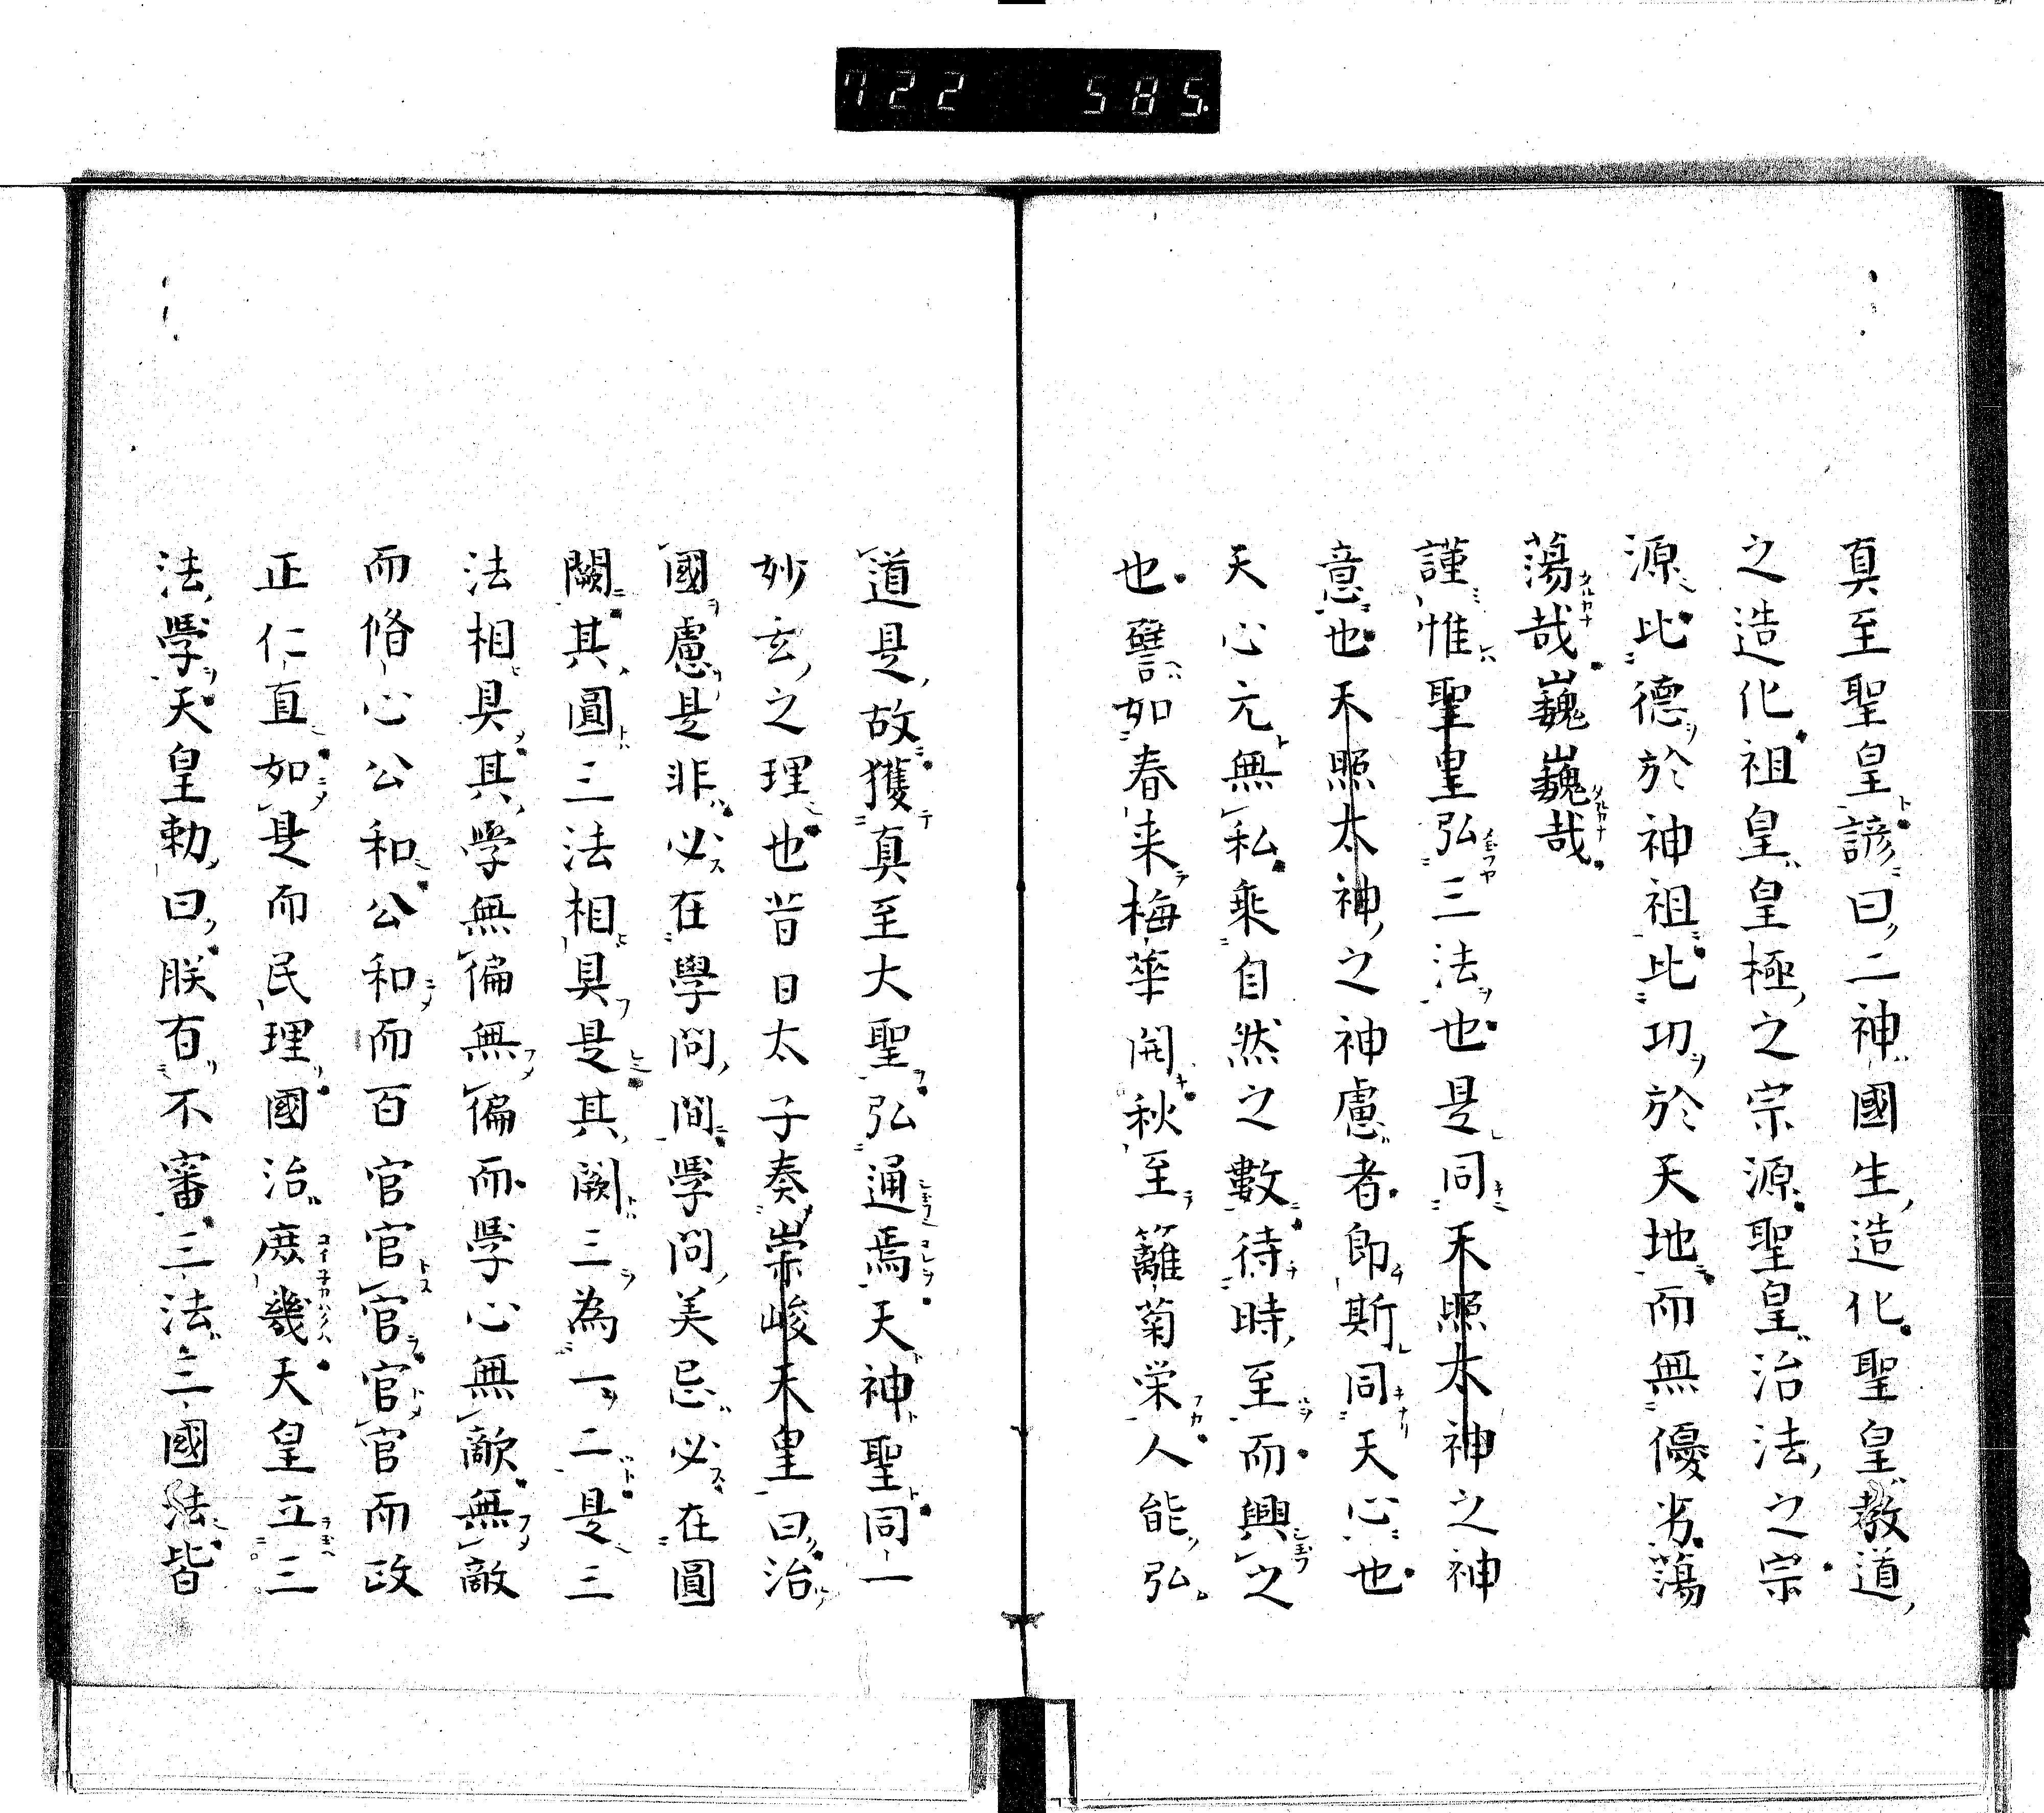 722 585.
真至聖皇諺曰二神國生造化聖皇教道
之造化祖皇皇極之宗源聖皇治法之宗
源比德於神祖比功於天地而無優劣蕩
蕩哉巍巍哉
謹惟聖皇弘三法也是同天照太神之神
意也天照太神之神慮者即斯同天心也
天心元無私乘自然之數待時至而興之
也譬如春来梅華開秋至籬菊栄人能弘
道是故獲真至大聖弘通焉天神聖同一
妙玄之理也昔日太子奏崇峻天皇曰治
國慮是非必在學問間學問美忌必在圓
闕其圓三法相具是其闕三為一二是三
法相具其学無偏無偏而學心無敵無敵
而脩心公和公和而百官官官官官而政
正仁直如是而民理國治庶幾天皇立三
法學天皇勅曰朕有不審三法三國法皆